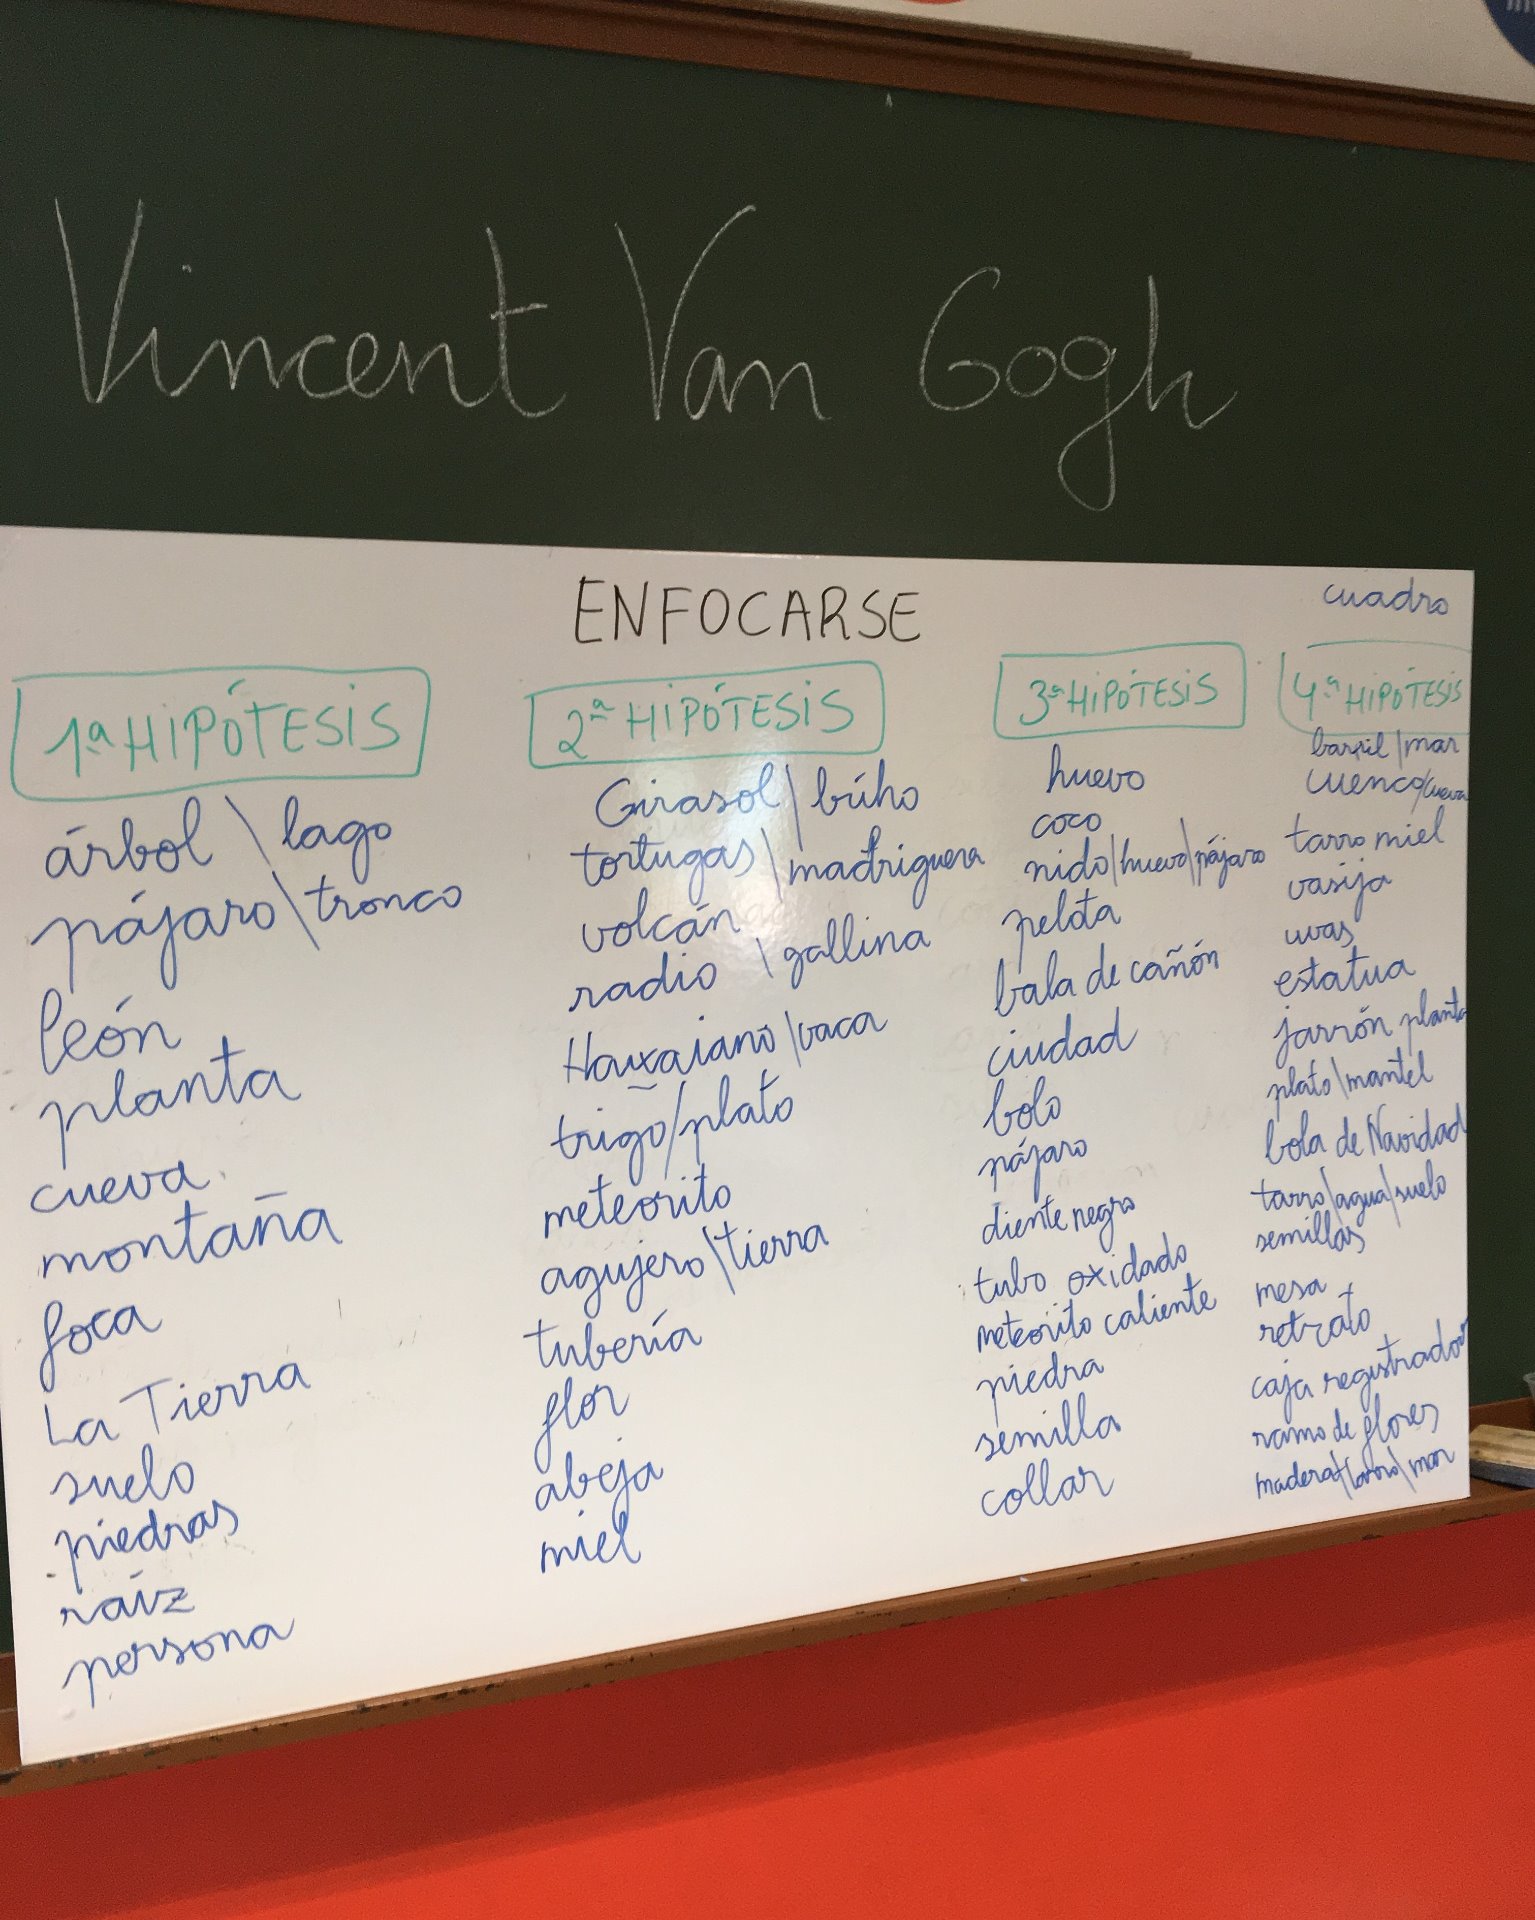 Vincent Van Gogh
ENFOCARSE
cuadro
1ª HIPÓTESIS
árbol \ lago
pájaro \ tronco
león
planta
cueva
montaña
foca
La Tierra
suelo
piedras
raíz
persona
2ª HIPÓTESIS
Girasol | búho
tortugas | madriguera
volcán
radio \ gallina
Hawaiano | vaca
trigo / plato
meteorito
agujero \ tierra
tubería
flor
abeja
miel
3ª HIPÓTESIS
huevo
coco
nido | huevo | pájaro
pelota
bala de cañón
ciudad
bolo
pájaro
diente negro
tubo oxidado
meteorito caliente
piedra
semilla
collar
4ª HIPÓTESIS
barril | mar
cuenco / cueva
tarro miel
vasija
uvas
estatua
jarrón planta
plato \ mantel
bola de Navidad
tarro | agua | suelo
semillas
mesa
retrato
caja registrador
ramo de flores
madera \ \ mar